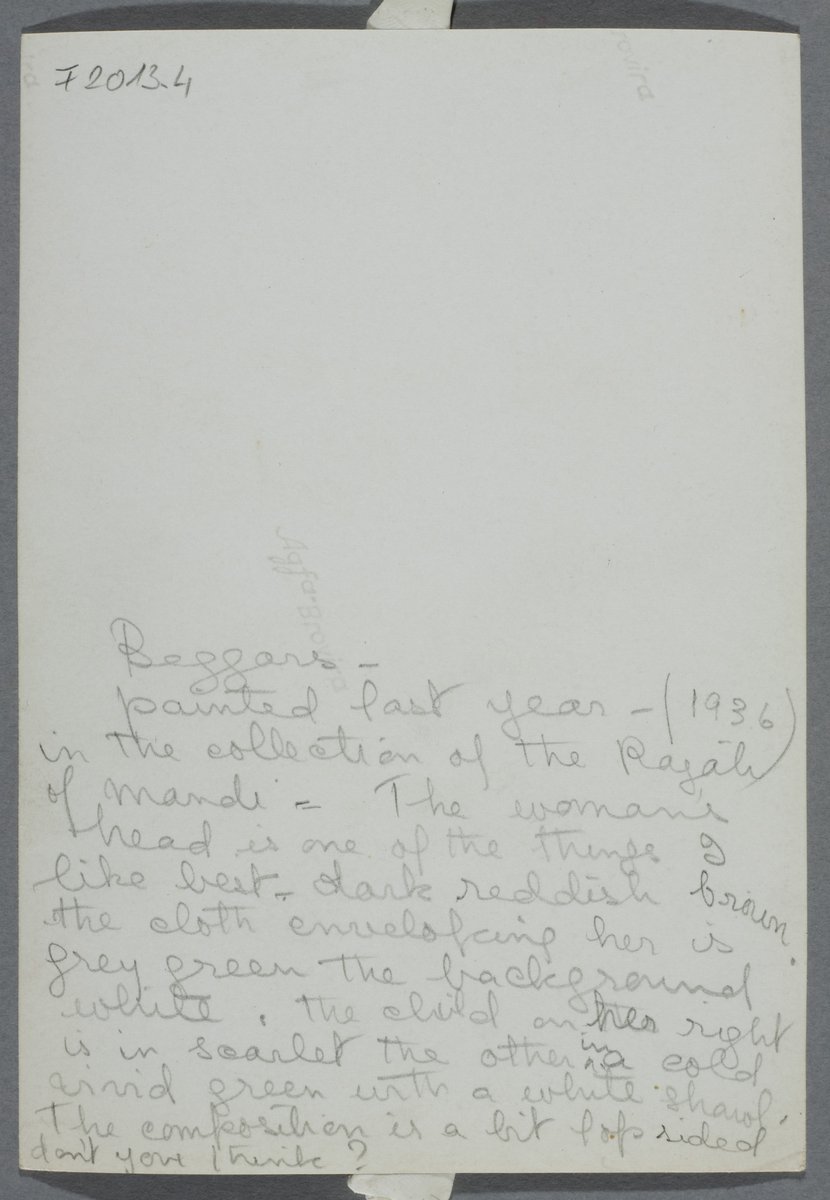 F2013.4
Agfa-Brovira
Beggars -
painted last year - (1936)
in the collection of the Rajah
of Mandi = The woman's
head is one of the things I
like best - dark reddish brown.
the cloth enveloping her is
grey green the background
white. the child on her right
is in scarlet the other in a cold
vivid green with a white shawl.
The composition is a bit lop sided
don't you think ?